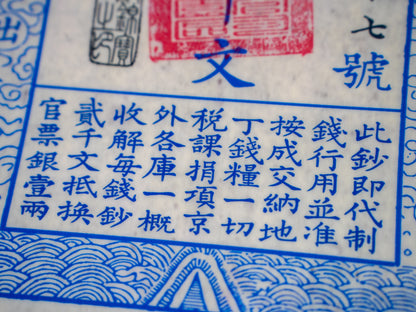 七號
十文
出
此鈔即代制
錢行用並准
按成交納地
丁錢糧一切
稅課捐項京
外各庫一概
收解每錢鈔
貳千文抵換
官票銀壹兩